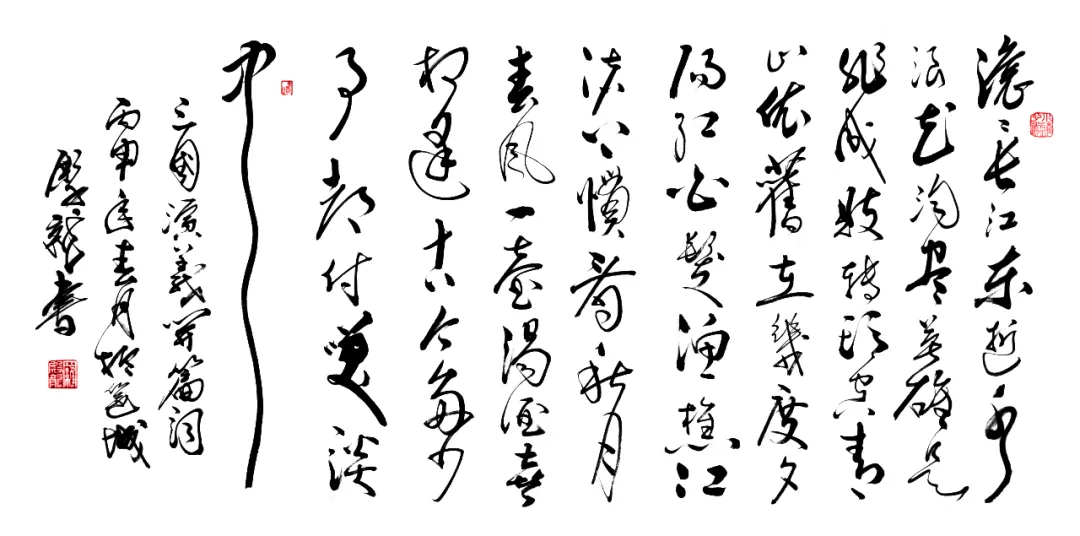 滚〻長江东逝水
浪花淘尽英雄是
非成败转头空青
山依舊在幾度夕
阳红白髮渔樵江
渚上惯看秋月
春风一壺濁酒喜
相逢古今多少
事都付笑谈
中
三國演義開篇词
丙申年春月於邕城
書